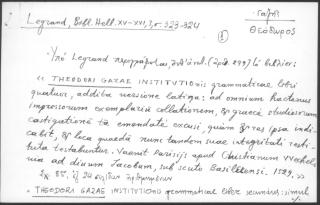 Legrand, Bibl. Hell. XV-XVI, 3, σ. 323-324
Γαζῆς
Θεόδωρος
①
Ὑπὸ Legrand περιγράφεται,
« THEODORI GAZAE INSTITUTIONIS grammaticae libri
quatuor, addita versione latina: ad omnium hactenus
impressorum exemplarium collationem, & graece studiosorum
castigationem ita emendate excusi, quam & res ipsa indi-
cabit, & loca quaedam nunc tandem suae integritati resti-
tuta testabuntur. Vaenit Parisijs apud Christianum Wechelum,
via ad divum Jacobum, sub scuto Basiliensi. 1529. »
« THEODORI GAZAE INSTITUTIONIS grammaticae liber secundus: simul